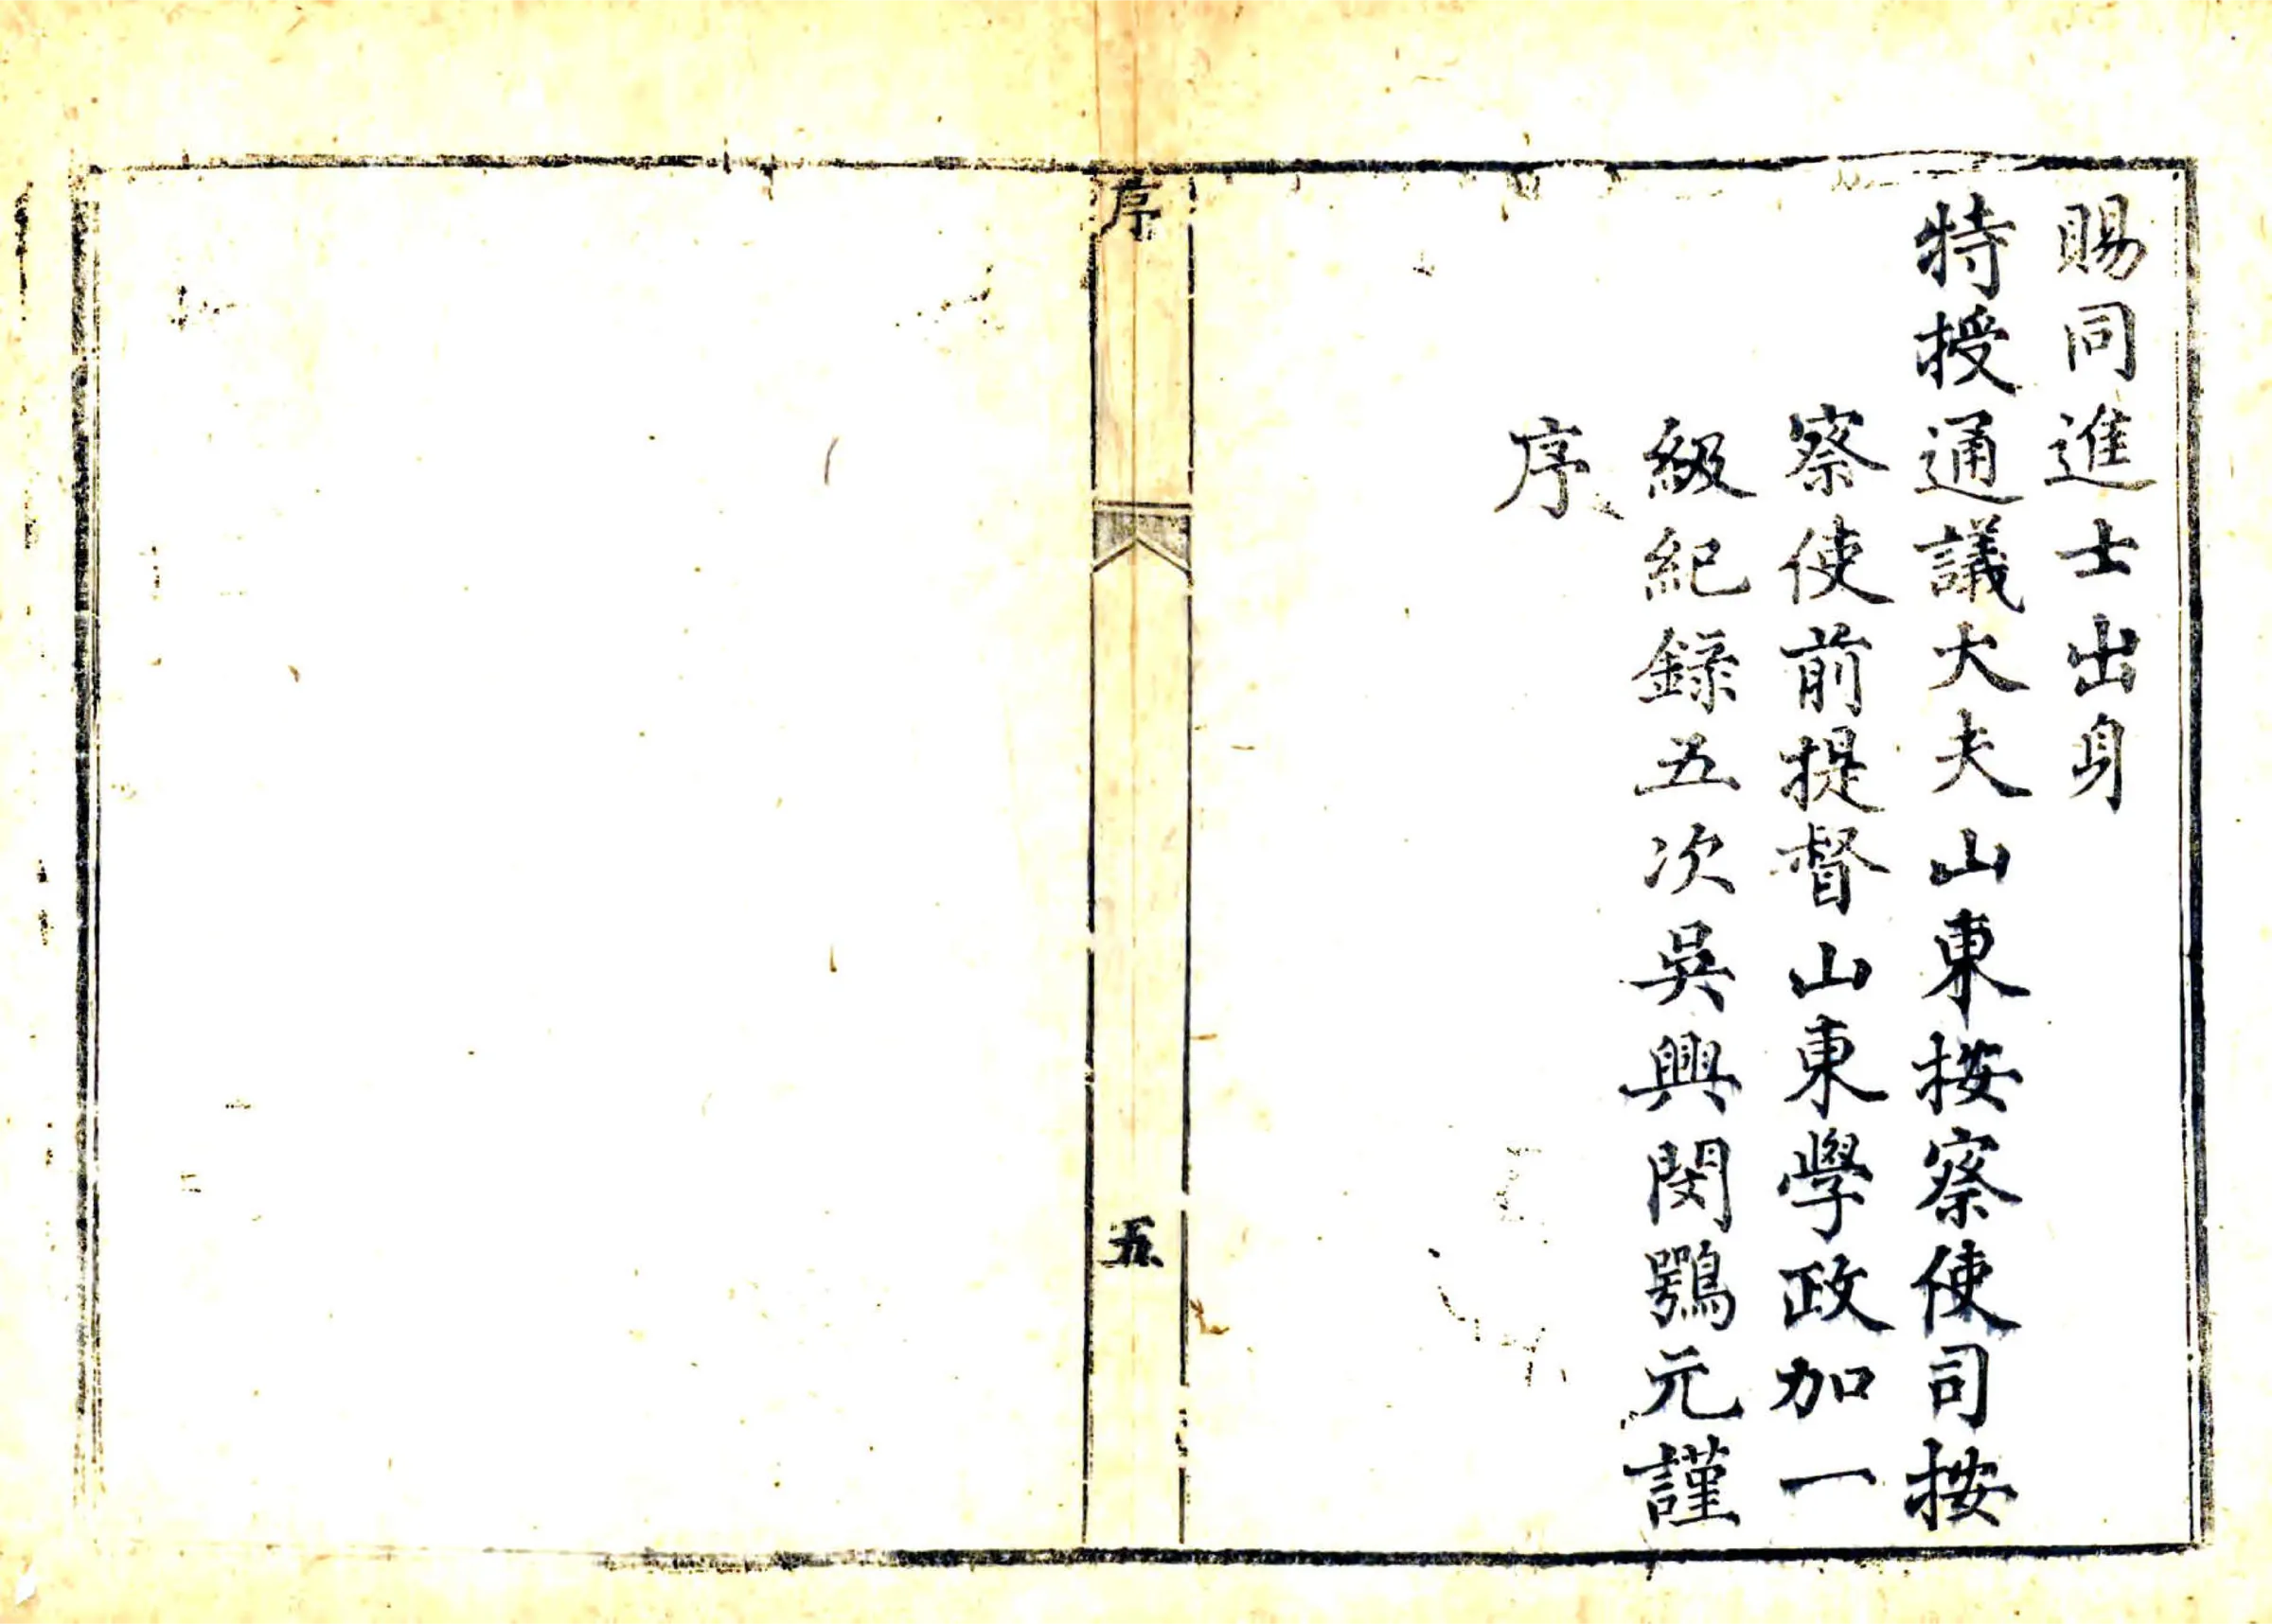 賜同進士出身
特授通議大夫山東按察使司按
察使前提督山東學政加一
級紀錄五次吳興閔鶚元謹
序
序
五